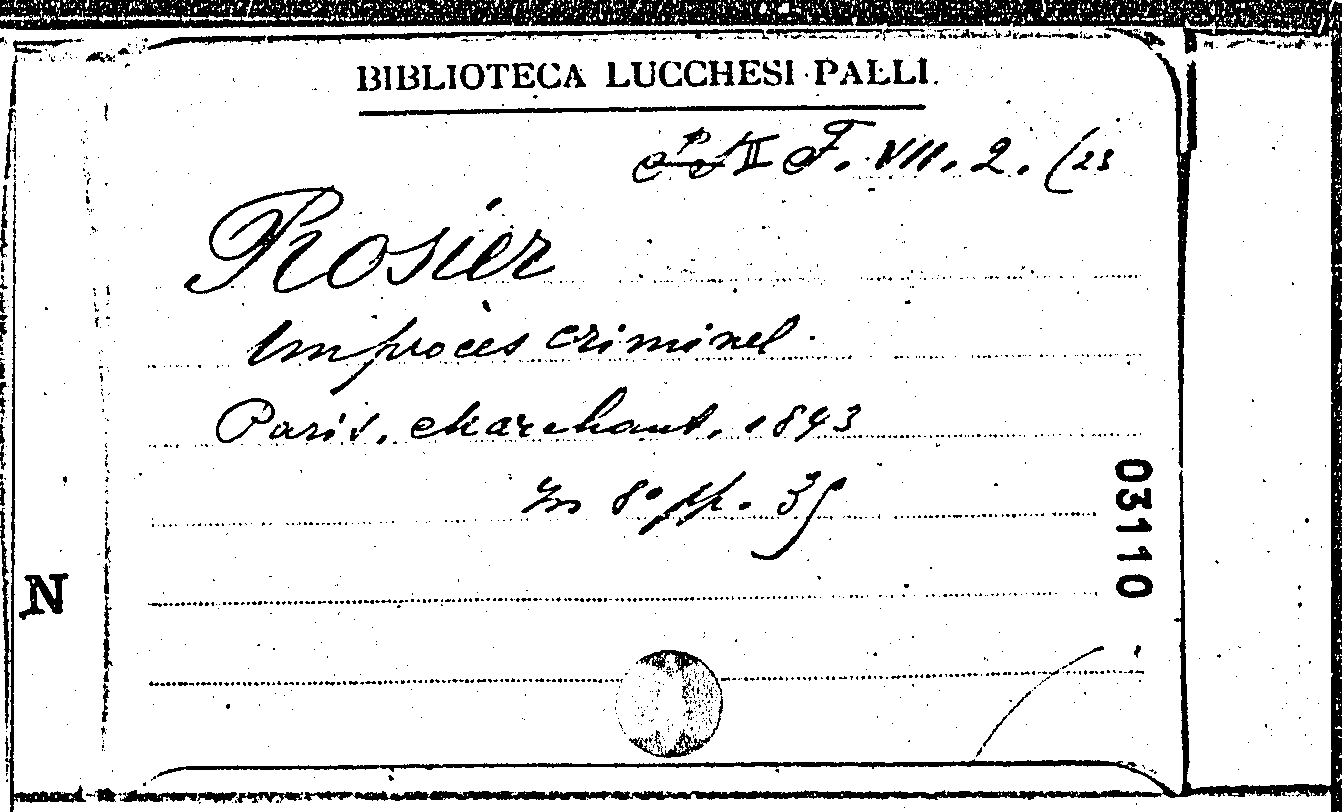 BIBLIOTECA LUCCHESI PALLI.
II F. VII. 2. (23
Rosier
Un procès criminel.
Paris. Marchant. 1843
In 8º pp. 35
03110
N